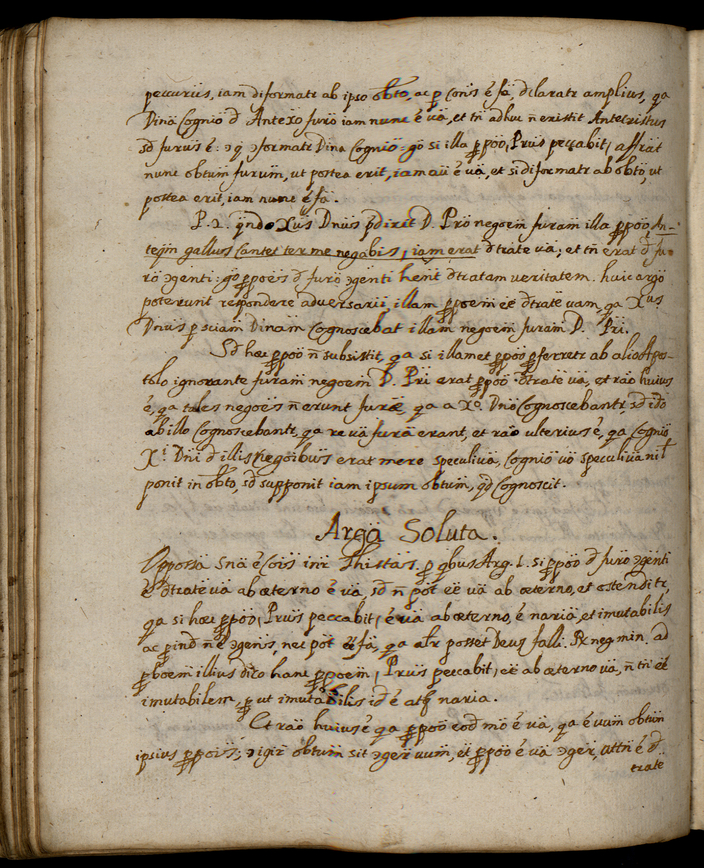 peccurus, iam diformatr ab ipso obto, ac p cons̄ ē fä, dclaratr amplius, qa
Dinā Cognio d̄ Antexo furō iam nunc ē vä, et tn̄ adhuc n̄ existit Antexristus
sd̄ furus ē: ɔformatr Dina Cognio: gō si illa ppöö, Prus peccabit, affrāt
nunc obtum furum̄, ut postea erit, iam ē vä, et si diformatr ab obtō, ut
postea erit, iam nunc ē fä.
P. 2. qn̄do Xus Dnus pdixit D. Prō negoem̄ furam̄ illa ppöö, An-
teqm̄ gallus Cantet ter me negabis, iam erat dtrate vä; et tn̄ erat d̄ fu-
rō ɔgenti: gō ppoës d̄ furō ɔgenti hent̄ dtratam veritatem. huic argō
poterunt respondere adversarii, illam ppoem̄ eē dtratē vam, qa Xus
Dnus p sciam̄ Dinam̄ Cognoscebat illam̄ negoem̄ furam̄ D. Pri.
Sd̄ haec ppöö n̄ subsistit, qa si illamet ppöö pferretr ab alio Apos-
tolo ignorante furam̄ negoem̄ D. Pri erat ppöö dtratē vä, et raō huius
ē, qa tales negoës n̄ erunt furæ, qa a Xo Dnō Cognoscebantr, sd̄ idō
ab illo Cognoscebantr, qa re vä furä erant, et raō ulterius ē, qa Cognio
Xi Dni d̄ illis Negoibus erat mere speculivä, Cognio vō speculivä nil
ponit in obto, sd̄ supponit iam ipsum obtum̄, qd̄ Cognoscit.
Arga Soluta.
Oppossä Snä ē Cois intr Thistas, p qbus Arg. 1. si ppöö d̄ furō ɔgenti
ē dtratē vä ab æterno ē vä, sd̄ n̄ pot̄ eē vä ab æterno, et ostenditr,
qa si haec ppöö, Prus peccabit, ē vä ab æterno, ē naria, et imutabilis
ac pind̄ n̄ ē ɔgens̄, nec pot̄ eē fä, qa altr posset Deus falli. R. neg min. ad
pboem̄ illius dico hanc ppoem̄, Prus peccabit, eē ab æterno vä, n̄ tn̄ eē
imutabilem, p ut imutabilis id ē atq naria.
Et raō huius ē qa ppöö eod̄ mō ē vä, qa ē vum̄ obtum̄
ipsius ppoïs; ɔ igir obtum̄ sit ɔger vum̄, et ppöö ē vä ɔger, uttn̄ ē d̄-
trate